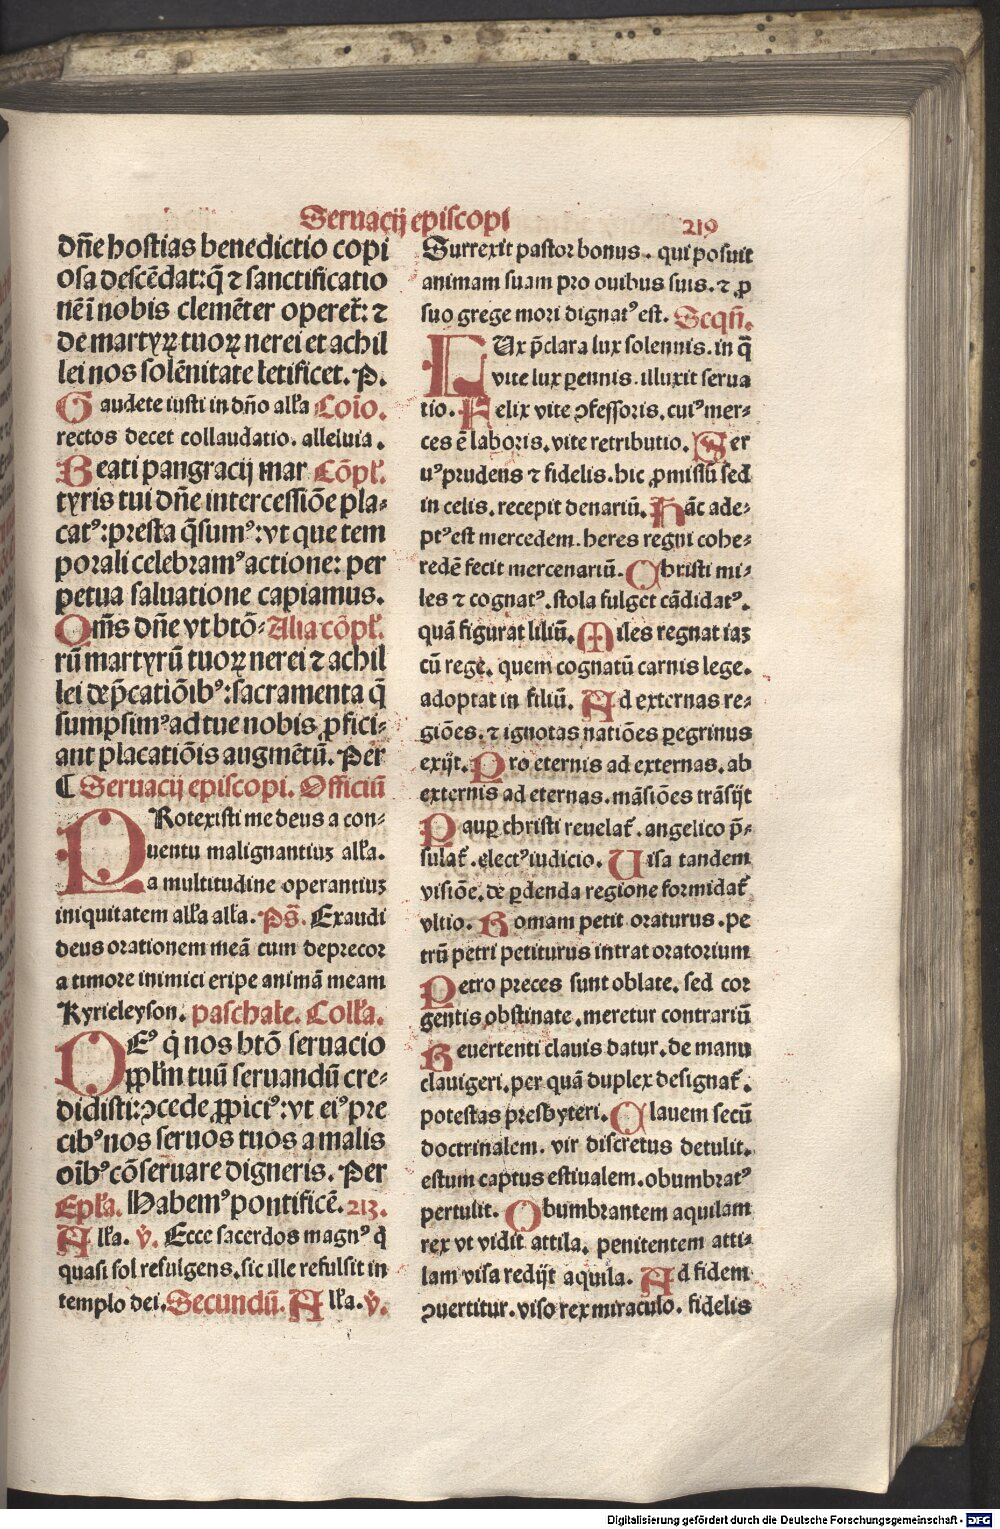 Seruacij episcopi 219
dn̄e hostias benedictio copi
osa descēdat: q̄ ⁊ sanctificatio
nē ī nobis clemēter operet᷑: ⁊
de martyrꝝ tuoꝝ nerei et achil
lei nos solēnitate letificet. P.
Gaudete iusti in dn̄o all'a Coīo.
rectos decet collaudatio. alleluia.
Beati pangracij mar Cōpl'.
tyris tui dn̄e intercessiōe pla-
catꝰ: presta q̄sumꝰ: vt que tem
porali celebramꝰ actione: per
petua saluatione capiamus.
Om̄s dn̄e vt btō- Alia cōpl'.
rū martyrū tuoꝝ nerei ⁊ achil
lei dep̄catiōibꝰ: sacramenta q̄
sumpsimꝰ ad tue nobis ꝓfici-
ant placatiōis augmētū. Per
¶ Seruacij episcopi. Officiū
PRotexisti me deus a con-
uentu malignantiuꝫ all'a.
a multitudine operantiuꝫ
iniquitatem all'a all'a. Ps̄. Exaudi
deus orationem meā cum deprecor
a timore inimici eripe animā meam
Kyrieleyson. paschale. Coll'a.
DEꝰ q̇ nos btō seruacio
ꝓpl'm tuū seruandū cre-
didisti: ꝯcede ꝓpiciꝰ: vt eiꝰ pre
cibꝰ nos seruos tuos a malis
oībꝰ cōseruare digneris. Per
Epl'a. Habemꝰ pontificē. 213.
All'a. v̇. Ecce sacerdos magnꝰ q̇
quasi sol refulgens. sic ille refulsit in
templo dei. Secundū. All'a. v̇.
Surrexit pastor bonus. qui posuit
animam suam pro ouibus suis. ⁊ ꝓ
suo grege mori dignatꝰ est. Seqn̄.
LUx p̄clara lux solennis. in q̄
vite lux ꝑennis. illuxit serua
tio. Felix vite ꝯfessoris. cuiꝰ mer-
ces ē laboris. vite retributio. Ser
uꝰ prudens ⁊ fidelis. hic ꝓmissū sed
in celis. recepit denariū. Hāc ade-
ptꝰ est mercedem. heres regni cohe-
redē fecit mercenariū. Christi mi-
les ⁊ cognatꝰ. stola fulget cādidatꝰ.
quā figurat liliū. Miles regnat iaꝫ
cū rege. quem cognatū carnis lege.
adoptat in filiū. Ad externas re-
giōes. ⁊ ignotas natiōes ꝑegrinus
exijt. Pro eternis ad externas. ab
externis ad eternas. māsiōes trāsijt
Pauꝑ christi reuelat᷑. angelico p̄-
sulat᷑. electꝰ iudicio. Uisa tandem
visiōe. de ꝑdenda regione formidat᷑
vltio. Romam petit oraturus. pe
trū petri petiturus intrat oratorium
Petro preces sunt oblate. sed cor
gentis obstinate. meretur contrariū
Reuertenti clauis datur. de manu
clauigeri. per quā duplex designat᷑.
potestas presbyteri. Clauem secū
doctrinalem. vir discretus detulit.
estum captus estiualem. obumbratꝰ
pertulit. Obumbrantem aquilam
rex vt vidit attila. penitentem atti-
lam visa redijt aquila. Ad fidem
ꝯuertitur. viso rex miraculo. fidelis
Digitalisierung gefördert durch die Deutsche Forschungsgemeinschaft - DFG